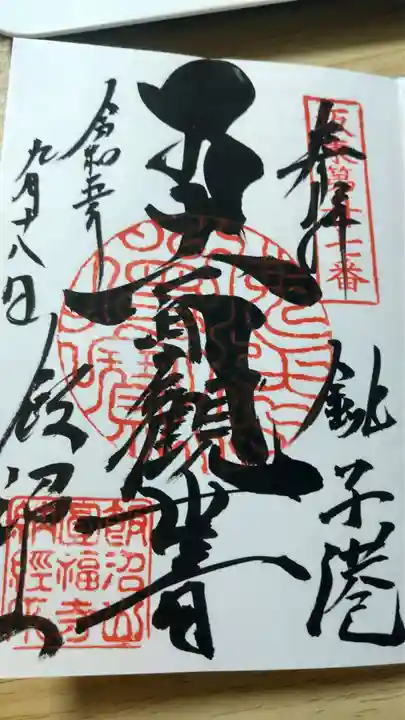 坂東第廿七番
奉拝
銚子港
面観世音
令和五年
九月十八日
飯沼山
飯沼山
圓福寺
納經